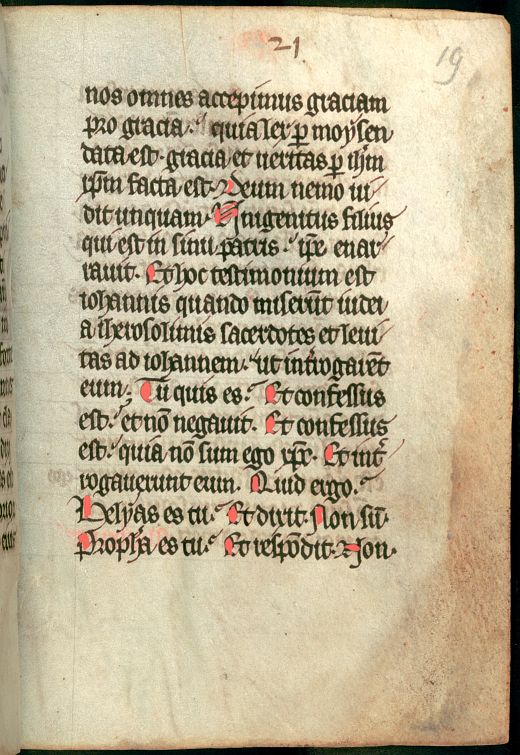 21
19
nos omnes accepimus graciam
pro gracia. quia lex p̱ moysen
data est. gracia et ueritas p̱ ih̄m
xp̄m facta est. Deum nemo ui
dit unquam. Vnigenitus filius
qui est in sinu patris. ip̄e enar
rauit. Et hoc testimonium est
iohannis quando miserūt iudei
a iherosolimis sacerdotes et leui
tas ad iohannem. ut int̄rogarēt
eum. Tu quis es. Et confessus
est. et nōn negauit. Et confessus
est. quia nōn sum ego xp̄c. Et int̄
rogauerunt eum. Quid ergo.
Helyas es tu. Et dixit. Non sū.
Proph̄a es tu. Et respōdit. Non.